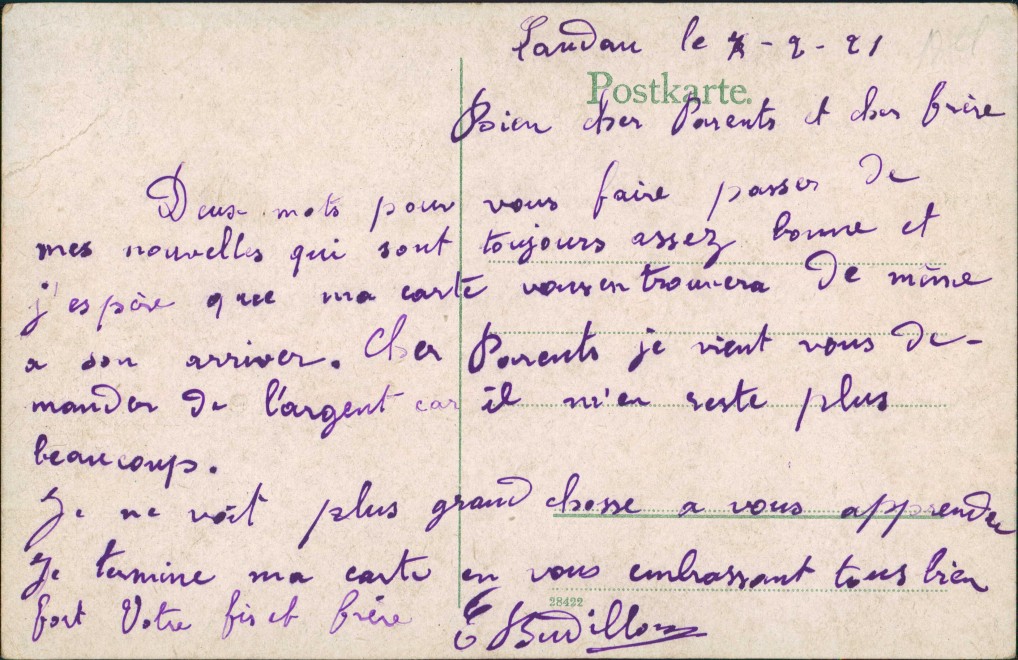 Landau le 7-2-21
Postkarte.
Bien cher Parents et cher frère
Deux mots pour vous faire passer de
mes nouvelles qui sont toujours assez bonne et
j'espère que ma carte vous en trouvera de même
a son arriver. Cher Parents je vient vous de-
mander de l'argent car il m'en reste plus
beaucoup.
Je ne voit plus grand chosse a vous apprender
Je termine ma carte en vous embrassant tous bien
fort Votre fis et frère
28422